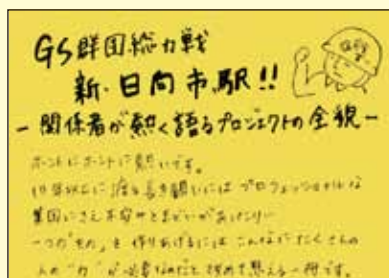 GS群団総力戦
新・日向市駅!!
-関係者が熱く語るプロジェクトの全貌-
ホントにホントに熱いです。
10年以上に渡る長き闘いには プロフェッショナルな
集団にさえ不安やとまどいがあったり…
一つの"もの"を作りあげるには こんなにたくさんの
人の"力"が必要なんだと改めて思える一冊です。